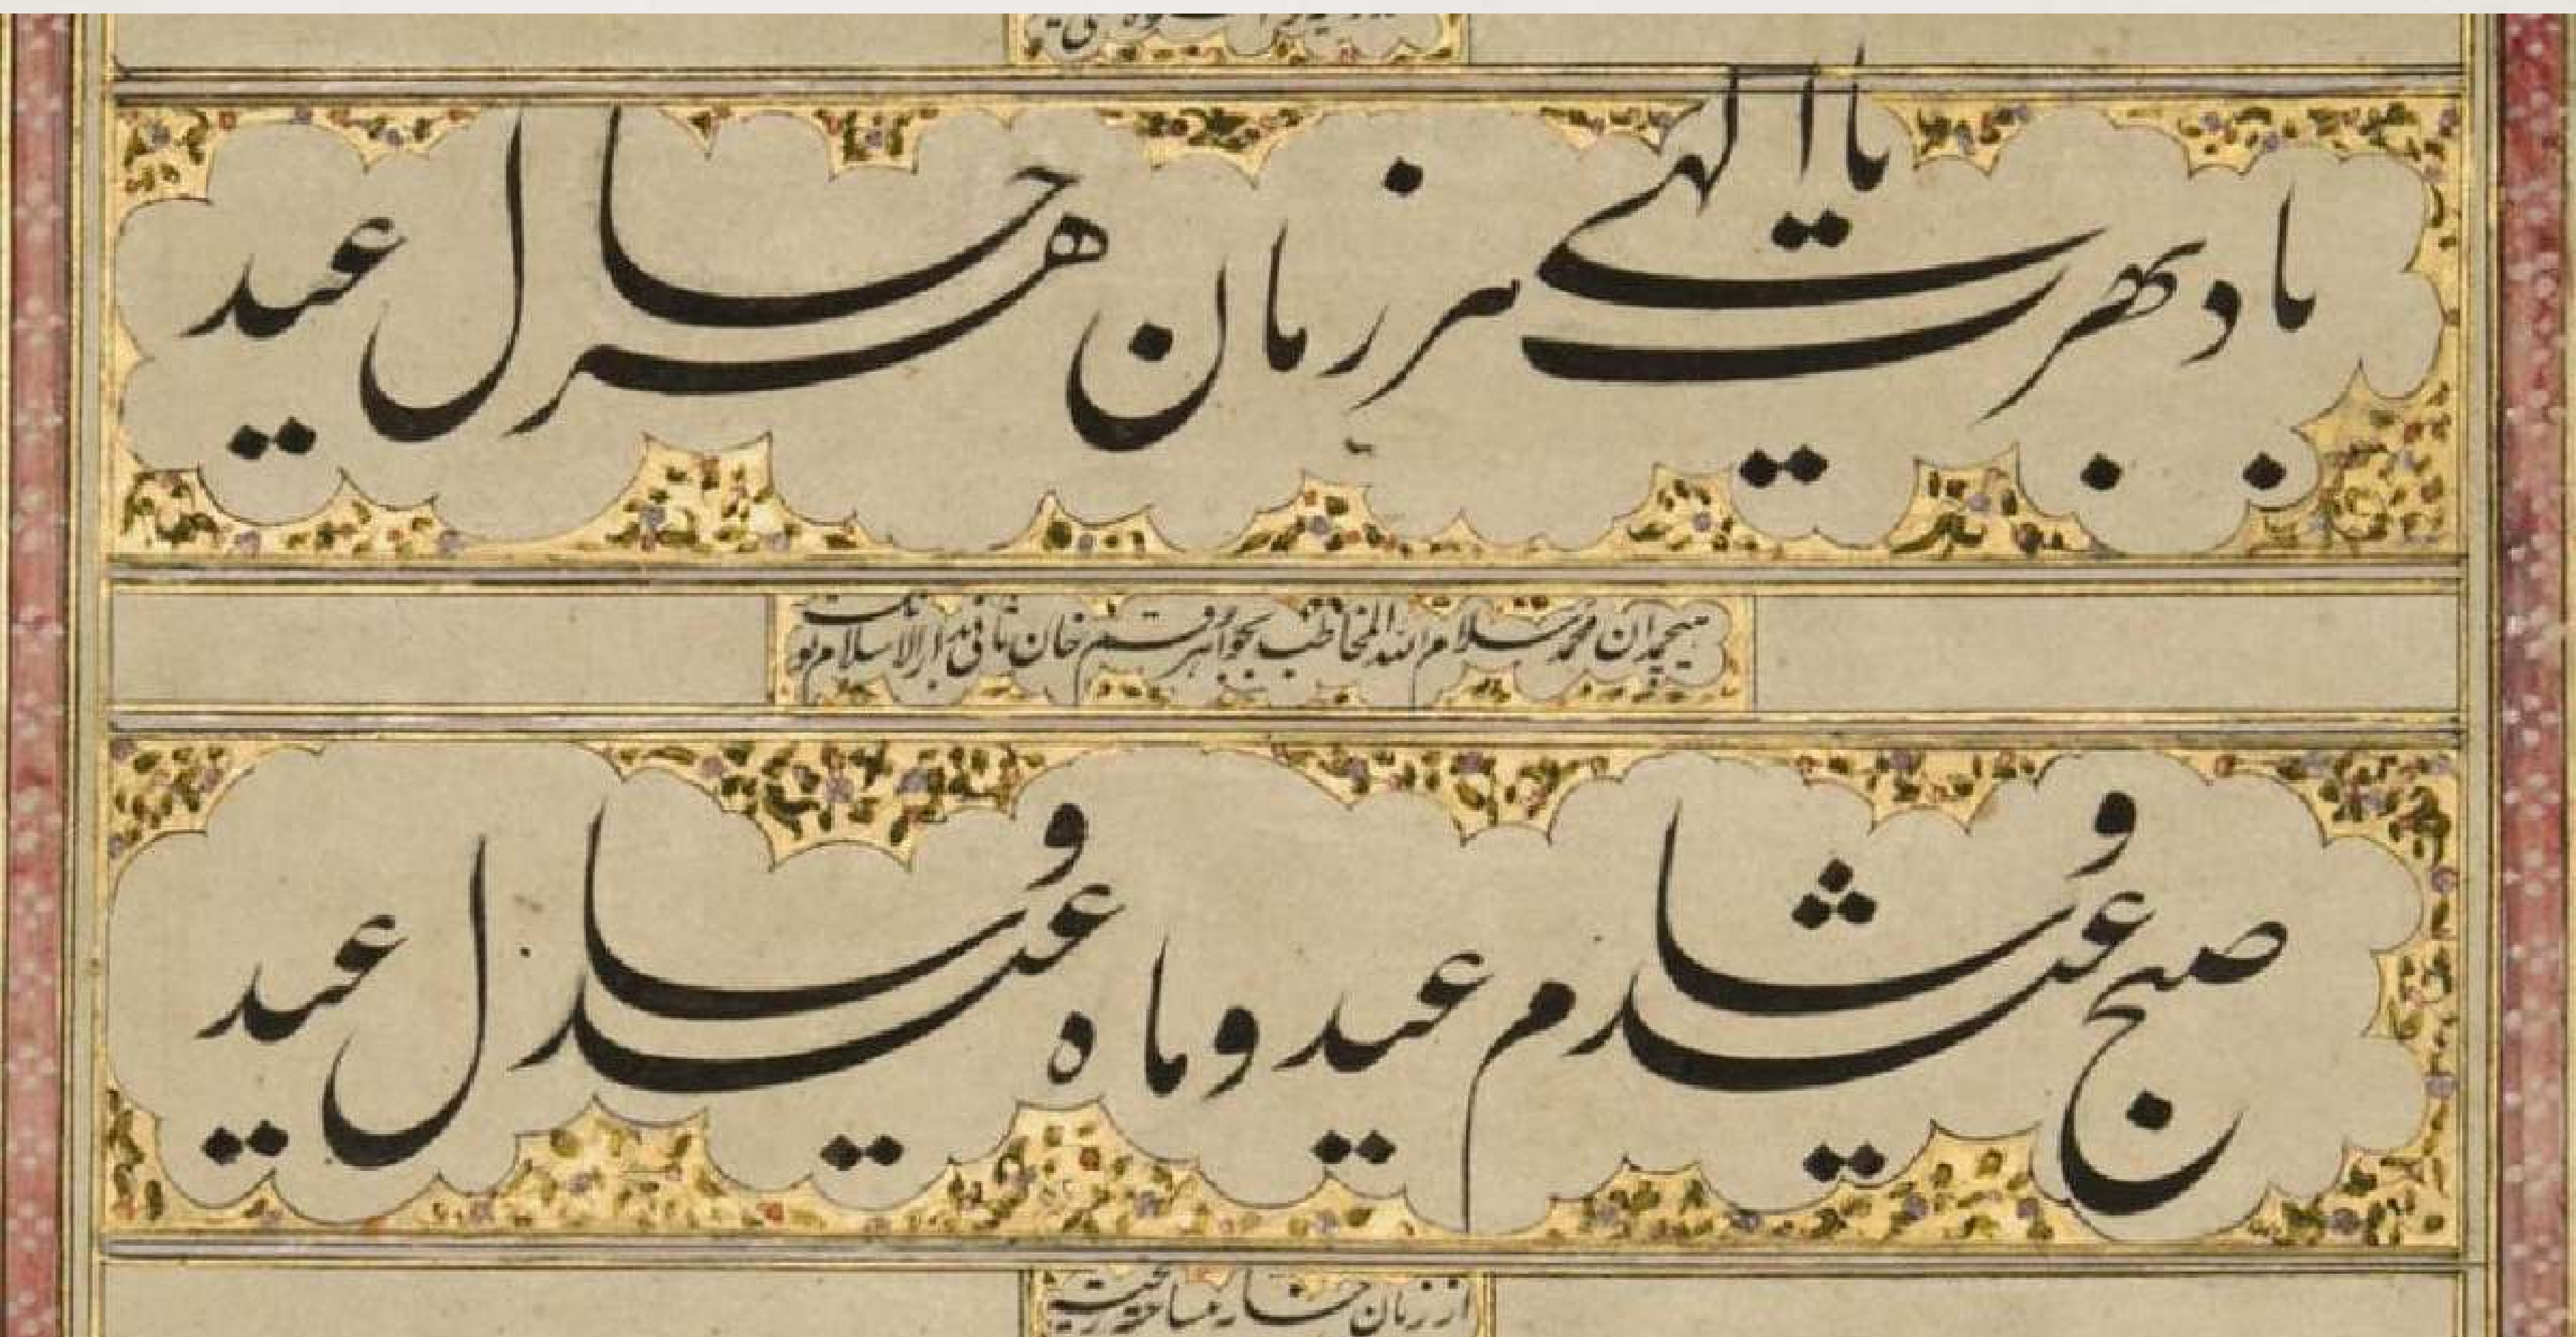 باد بهرت یا الهی هر زمان هر حال عید
هیچمدان محمد سلام الله المخاطب بجواهر رقم خان ثانی بدار الاسلام تونک
صبح عید و شام عید و ماه عید و سال عید